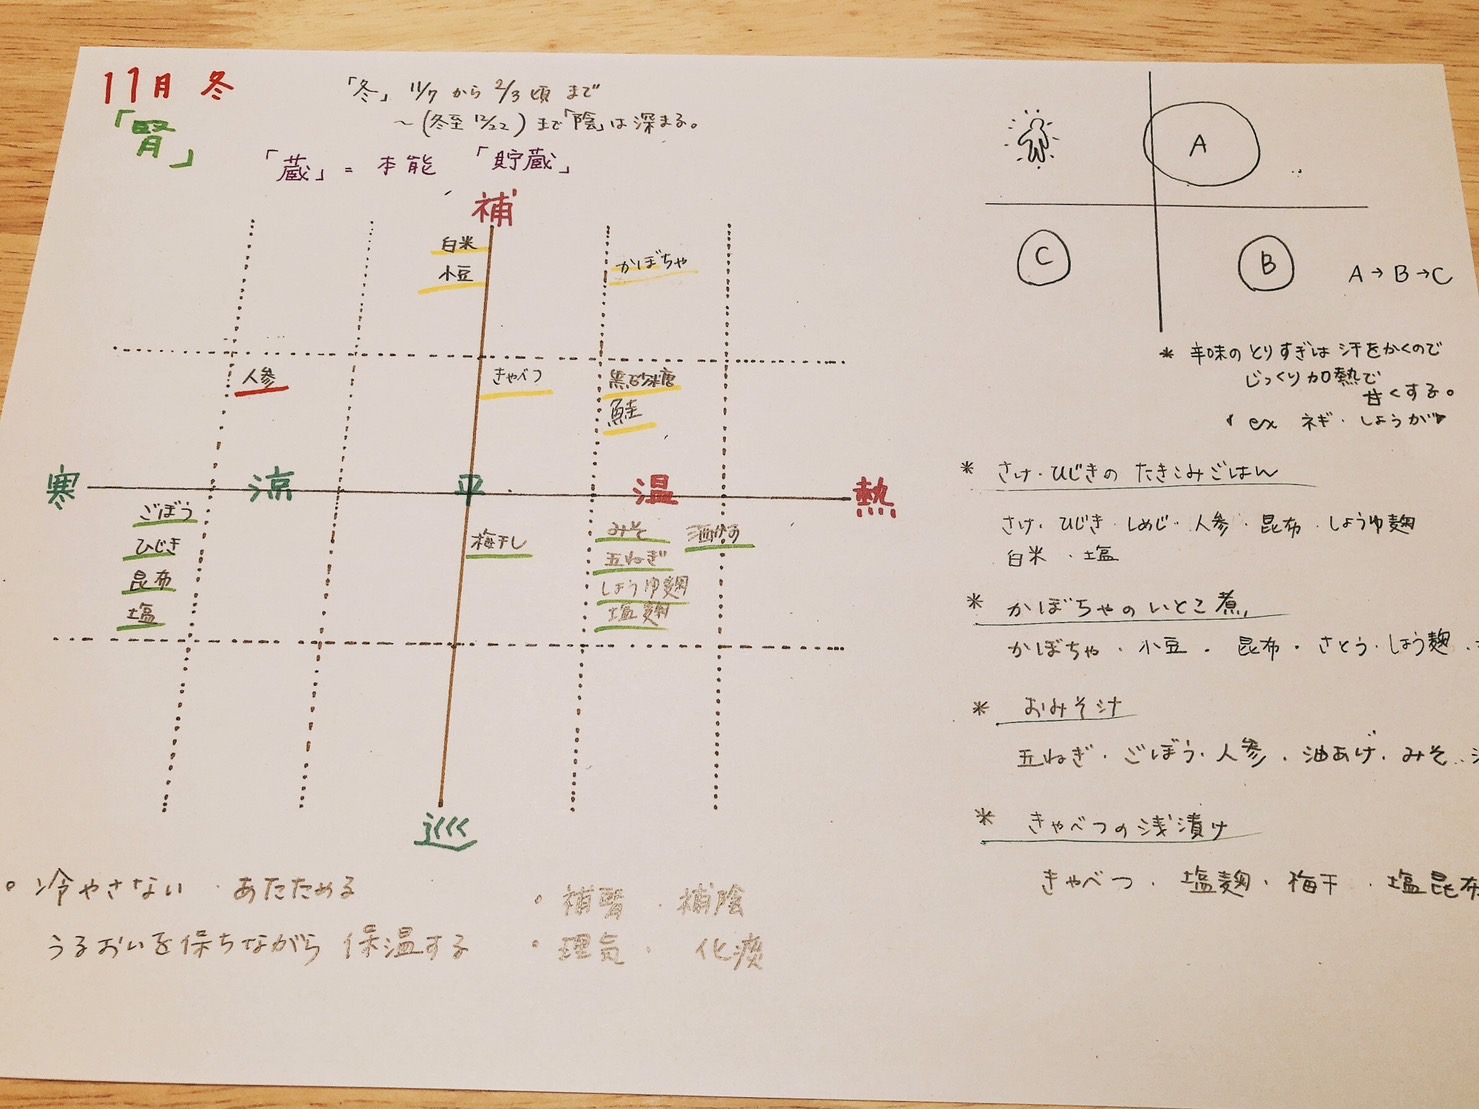 11月 冬
「腎」
「冬」 11/7 から 2/3 頃 まで
～(冬至 12/22) まで「陰」は深まる。
「蔵」= 本能 「貯蔵」
補
白米
小豆
かぼちゃ
人参
きゃべつ
黒砂糖
鮭
寒 涼 平 温 熱
ごぼう
ひじき
昆布
塩
梅干し
みそ
玉ねぎ
しょうゆ麹
塩麹
酒かす
巡
・冷やさない ・あたためる
うるおいを保ちながら 保温する
・補腎 ・補陰
・理気 ・化痰
A
C
B
A→B→C
* 辛味のとりすぎは汗をかくので
じっくり加熱で
甘くする。
ex ネギ・しょうが
* さけ・ひじきの たきこみごはん
さけ・ひじき・しめじ・人参・昆布・しょうゆ麹
白米・塩
* かぼちゃのいとこ煮
かぼちゃ・小豆・昆布・さとう・しょう麹・
* おみそ汁
玉ねぎ・ごぼう・人参・油あげ・みそ・
* きゃべつの浅漬け
きゃべつ・塩麹・梅干・塩昆布